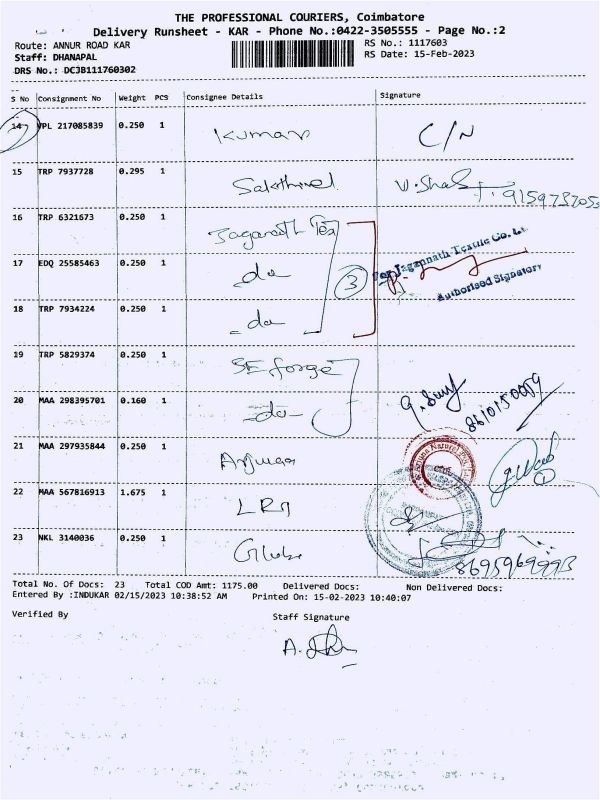 THE PROFESSIONAL COURIERS, Coimbatore
Delivery Runsheet - KAR - Phone No.:0422-3505555 - Page No.:2
Route: ANNUR ROAD KAR RS No.: 1117603
Staff: DHANAPAL RS Date: 15-Feb-2023
DRS No.: DCJB111760302
S No Consignment No Weight PCS Consignee Details Signature
14 VPL 217085839 0.250 1 Kumar C/N
15 TRP 7937728 0.295 1 Sakthivel 9159737055
16 TRP 6321673 0.250 1 Jaganath Tex
For Jagannath Textile Co. Ltd
17 EDQ 25585463 0.250 1 do 3
Authorised Signatory
18 TRP 7934224 0.250 1 - do
19 TRP 5829374 0.250 1 SE forge
20 MAA 298395701 0.160 1 - do -
21 MAA 297935844 0.250 1
22 MAA 567816913 1.675 1
23 NKL 3140036 0.250 1 Globe
8695969993
Total No. Of Docs: 23 Total COD Amt: 1175.00 Delivered Docs: Non Delivered Docs:
Entered By :INDUKAR 02/15/2023 10:38:52 AM Printed On: 15-02-2023 10:40:07
Verified By Staff Signature